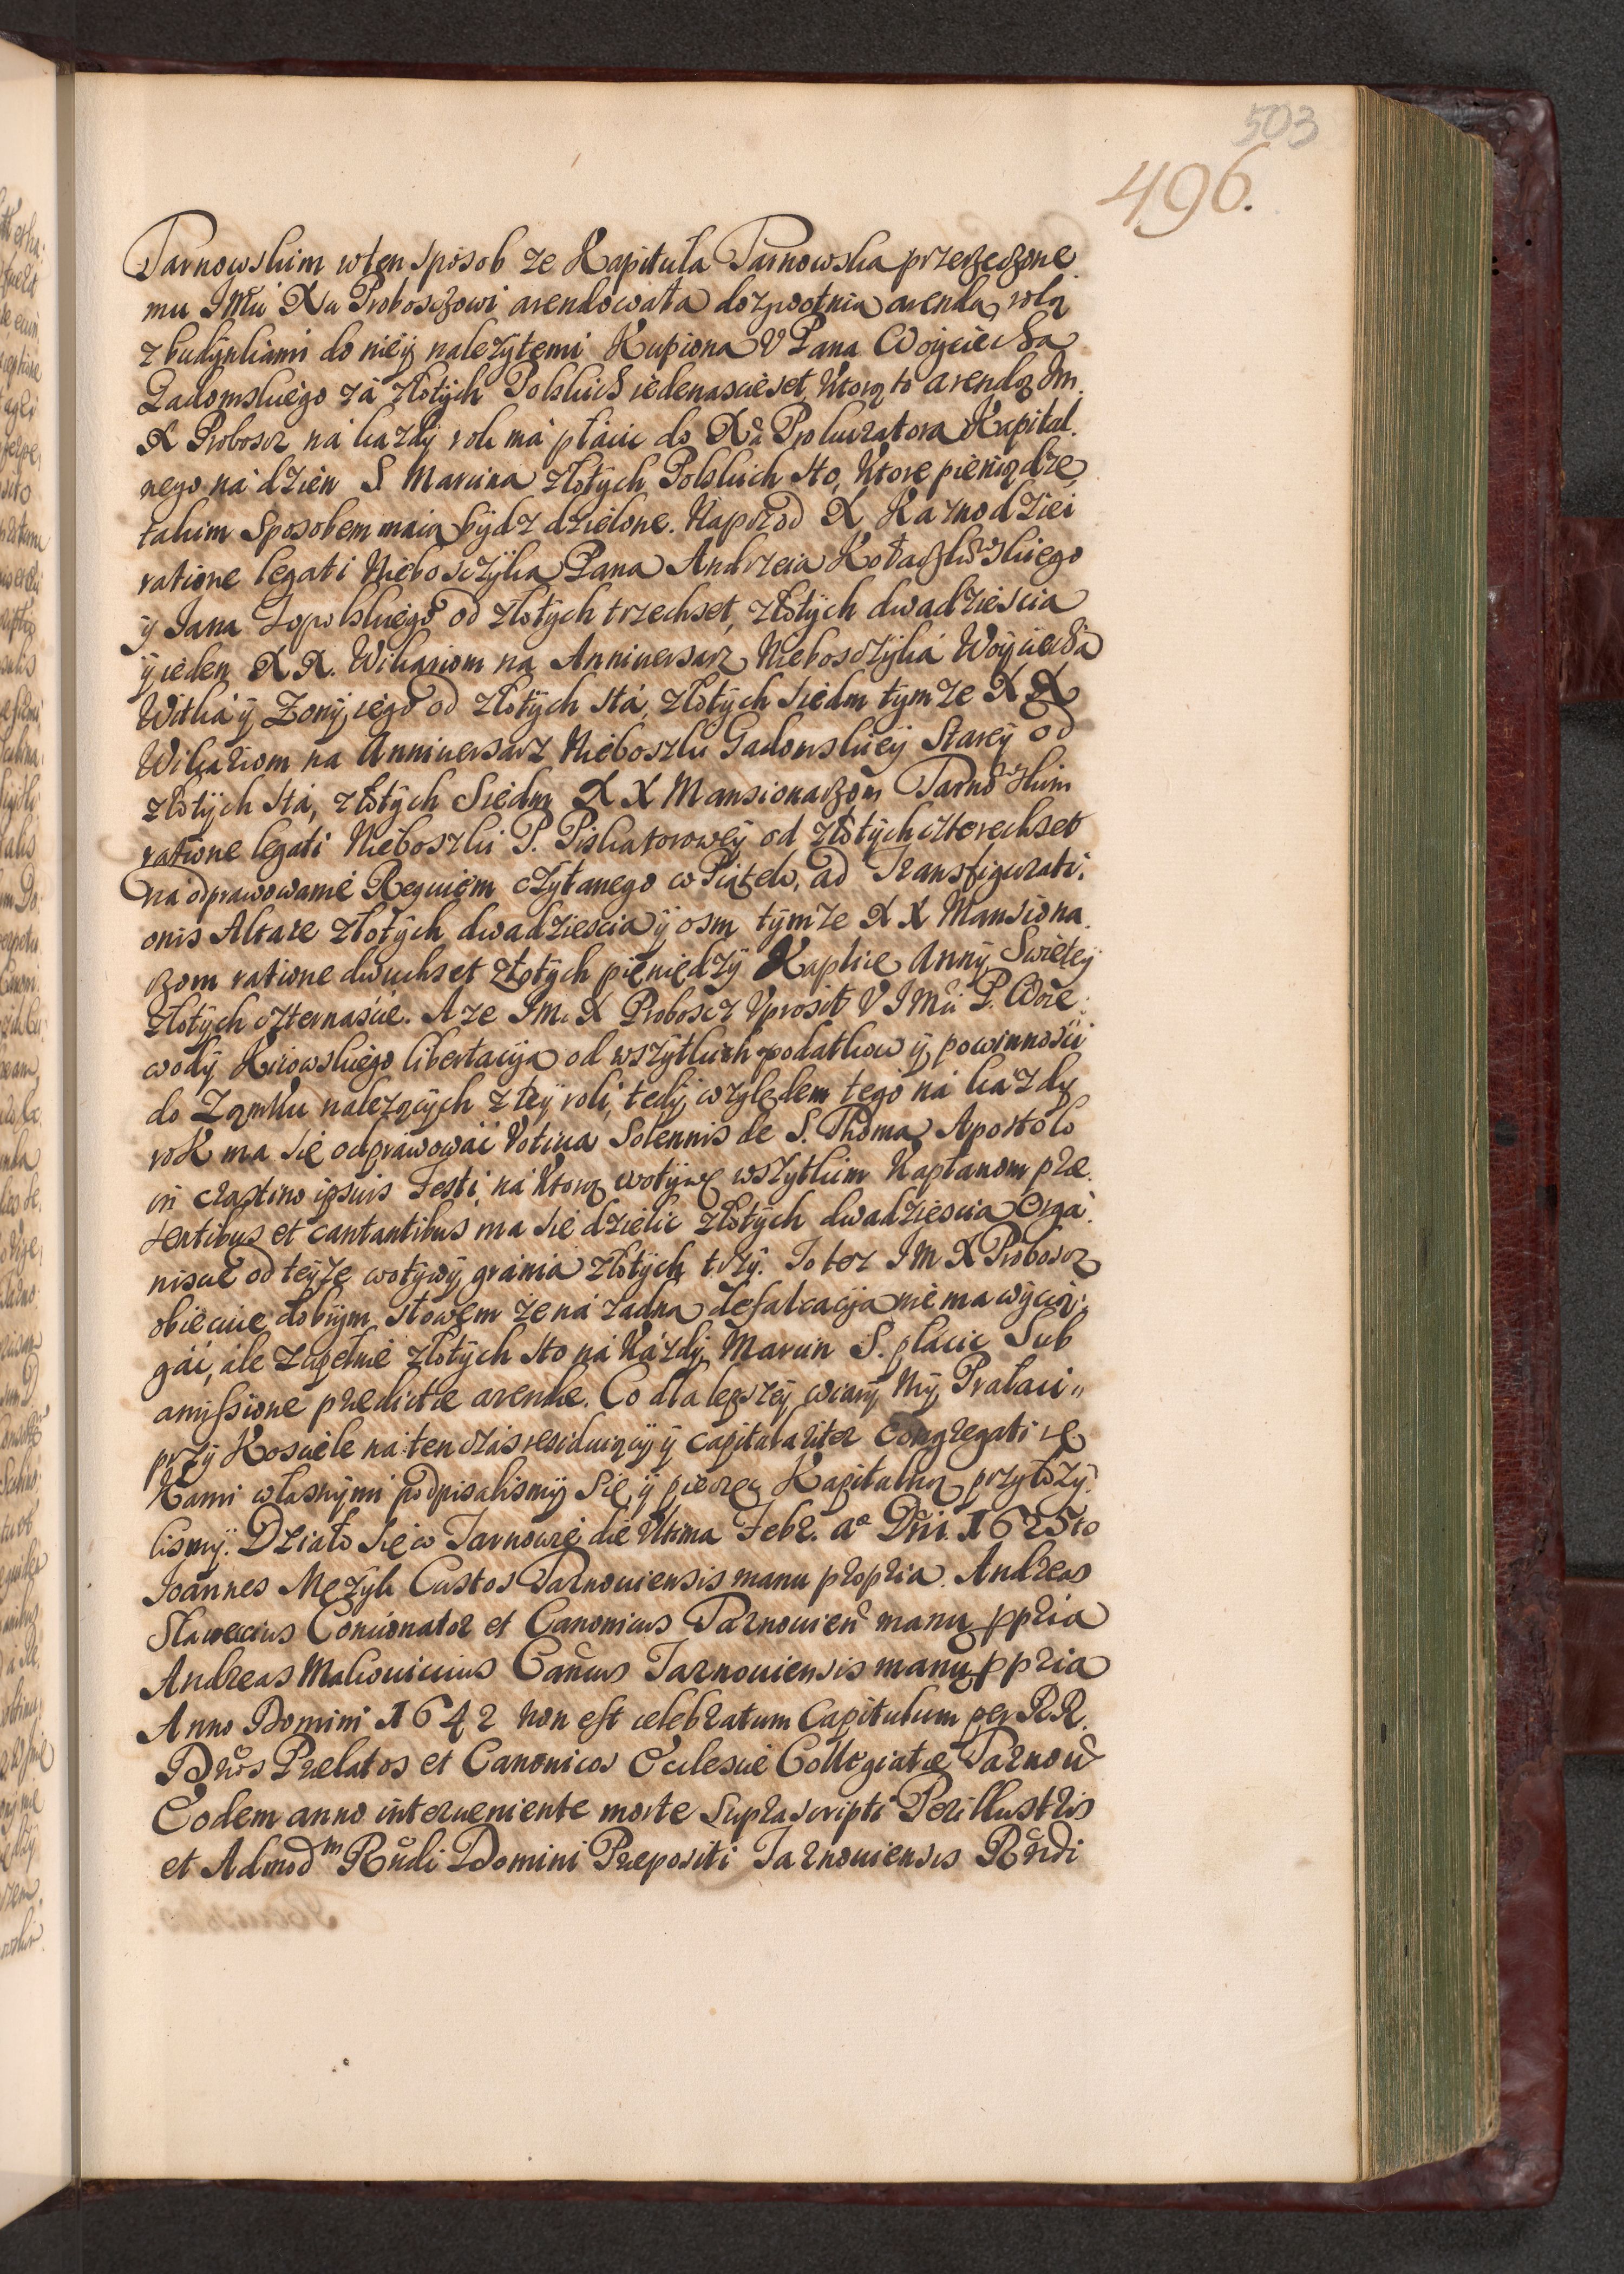 503
496.
Tarnowskim w ten sposob ze Kapituła Tarnowska przerzeczone
mu JMci Xu Proboszczowi arendowała dozywotnia arenda rolą
z budynkami do nieÿ nalezÿtemi Kupiona V Pana Woÿciecha
Gadomskiego zá złotÿch Polskich iedenascie set, ktorą to arendą Jm.
X Probosz ná kazdÿ rok má płácic do Xa Prokuratora Kapitul.
nego ná dzien S. Marcina złotÿch Polskich sto, ktore pieniądze
takim sposobem maią bÿdz dzielone. Naprzod X Kaznodziei
ratione legati Nieboszczÿka Pana Andrzeia
ÿ Jana od złotÿch trzechset, złotÿch dwadziescia
ÿ ieden XX. Wikariom na Anniuersarz Nieboszczÿká Woÿciecha
Witka ÿ Zonÿ iego od złotÿch stá, złotÿch siedm tÿmze XX
Wikariom na Anniuersarz Nieboszki Gadomskieÿ Stareÿ od
złotÿch stá, złotÿch Siedm XX Mansionarzom Tarnowskim
ratione legati Nieboszki P. Piskatoroweÿ od złotÿch czterechset
ná odprawowanie Requiem czÿtanego w Piątek, ad Transfigurati:
onis Altare złotÿch dwadziescia ÿ osm tÿmze XX Mansiona.
rzom ratione dwuchset złotÿch pieniedzÿ Kaplice Annÿ Swieteÿ
złotÿch czternascie. A ze JM. X Probosz Vprosił V JMci P. Woie:
wodÿ Kiiowskiego libertacÿa od wszÿtkich podatkow ÿ powinnosci
do Zamku nalezącÿch z teÿ roli, tedÿ wzgledem tego ná kazdÿ
rok ma sie odprawowáć Votiua Solennis de S. Thoma Apostolo
in crastino ipsius Festi, ná ktorą wotÿwę wszÿtkim Kapłanom præ
sentibus et cantantibus ma sie dzielic złotÿch dwadziescia Orga:
niscie od teÿze wotÿwÿ gránia złotÿch trzÿ. To tez JM X Probosz
obiecuie dobrÿm słowem ze ná zadna defalcacÿa nie ma wÿcią:
gáć, ále zupełnie złotÿch sto ná kázdÿ Marcin S. płácic Sub
amissione prædictæ arendæ. Co dla lepszeÿ wiarÿ Mÿ Prałaci
przÿ Kosciele na ten czás residuiącÿ ÿ capitulariter congregati rę
kami własnÿmi podpisalismÿ Się, ÿ pieczęć Kapitulną przÿłozÿ:
lismÿ. Działo Sie w Tarnowie die Ultima Febr. aº Dni. 1625to
Joannes Mezÿk Custos Tarnouiensis manu propria. Andreas
Slawecius Concionator et Canonicus Tarnouien manu ppria
Andreas Makouicius Cancus Tarnouiensis manu ppria
Anno Domini 1642 non est celebratum Capitulum per RR.
Dnos Prælatos et Canonicos Ecclesiæ Collegiatæ Tarnou
Eodem anno interueniente morte Suprascripti Perillustris
et Admodm Rndi Domini Præpositi Tarnouiensis Rndi